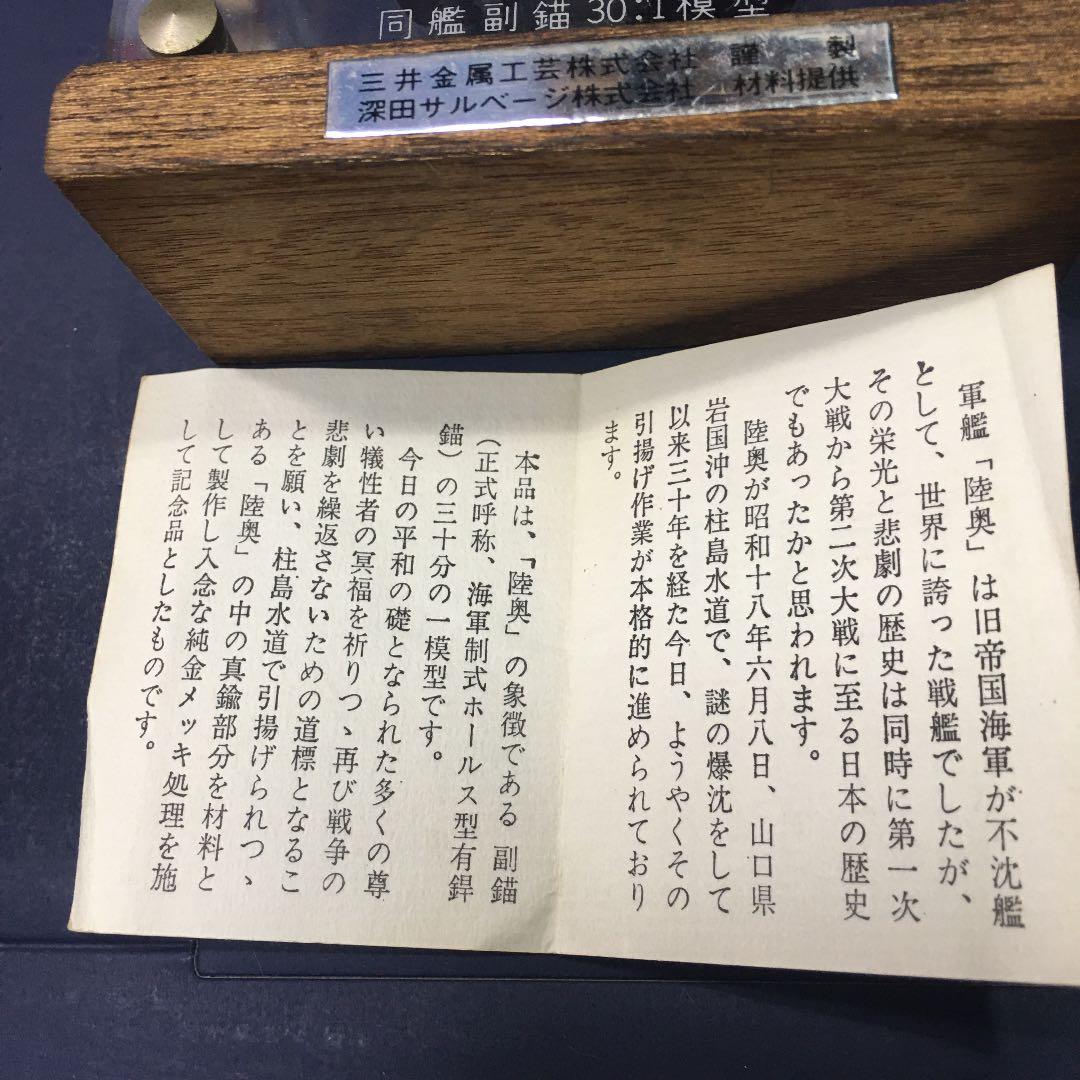 同艦副錨30:1模型
三井金属工芸株式会社 謹製
深田サルベージ株式会社 材料提供
軍艦「陸奥」は旧帝国海軍が不沈艦
として、世界に誇った戦艦でしたが、
その栄光と悲劇の歴史は同時に第一次
大戦から第二次大戦に至る日本の歴史
でもあったかと思われます。
陸奥が昭和十八年六月八日、山口県
岩国沖の柱島水道で、謎の爆沈をして
以来三十年を経た今日、ようやくその
引揚げ作業が本格的に進められており
ます。
本品は、「陸奥」の象徴である副錨
（正式呼称、海軍制式ホールス型有銲
錨）の三十分の一模型です。
今日の平和の礎となられた多くの尊
い犠性者の冥福を祈りつゝ再び戦争の
悲劇を繰返さないための道標となるこ
とを願い、柱島水道で引揚げられつゝ
ある「陸奥」の中の真鍮部分を材料と
して製作し入念な純金メッキ処理を施
して記念品としたものです。